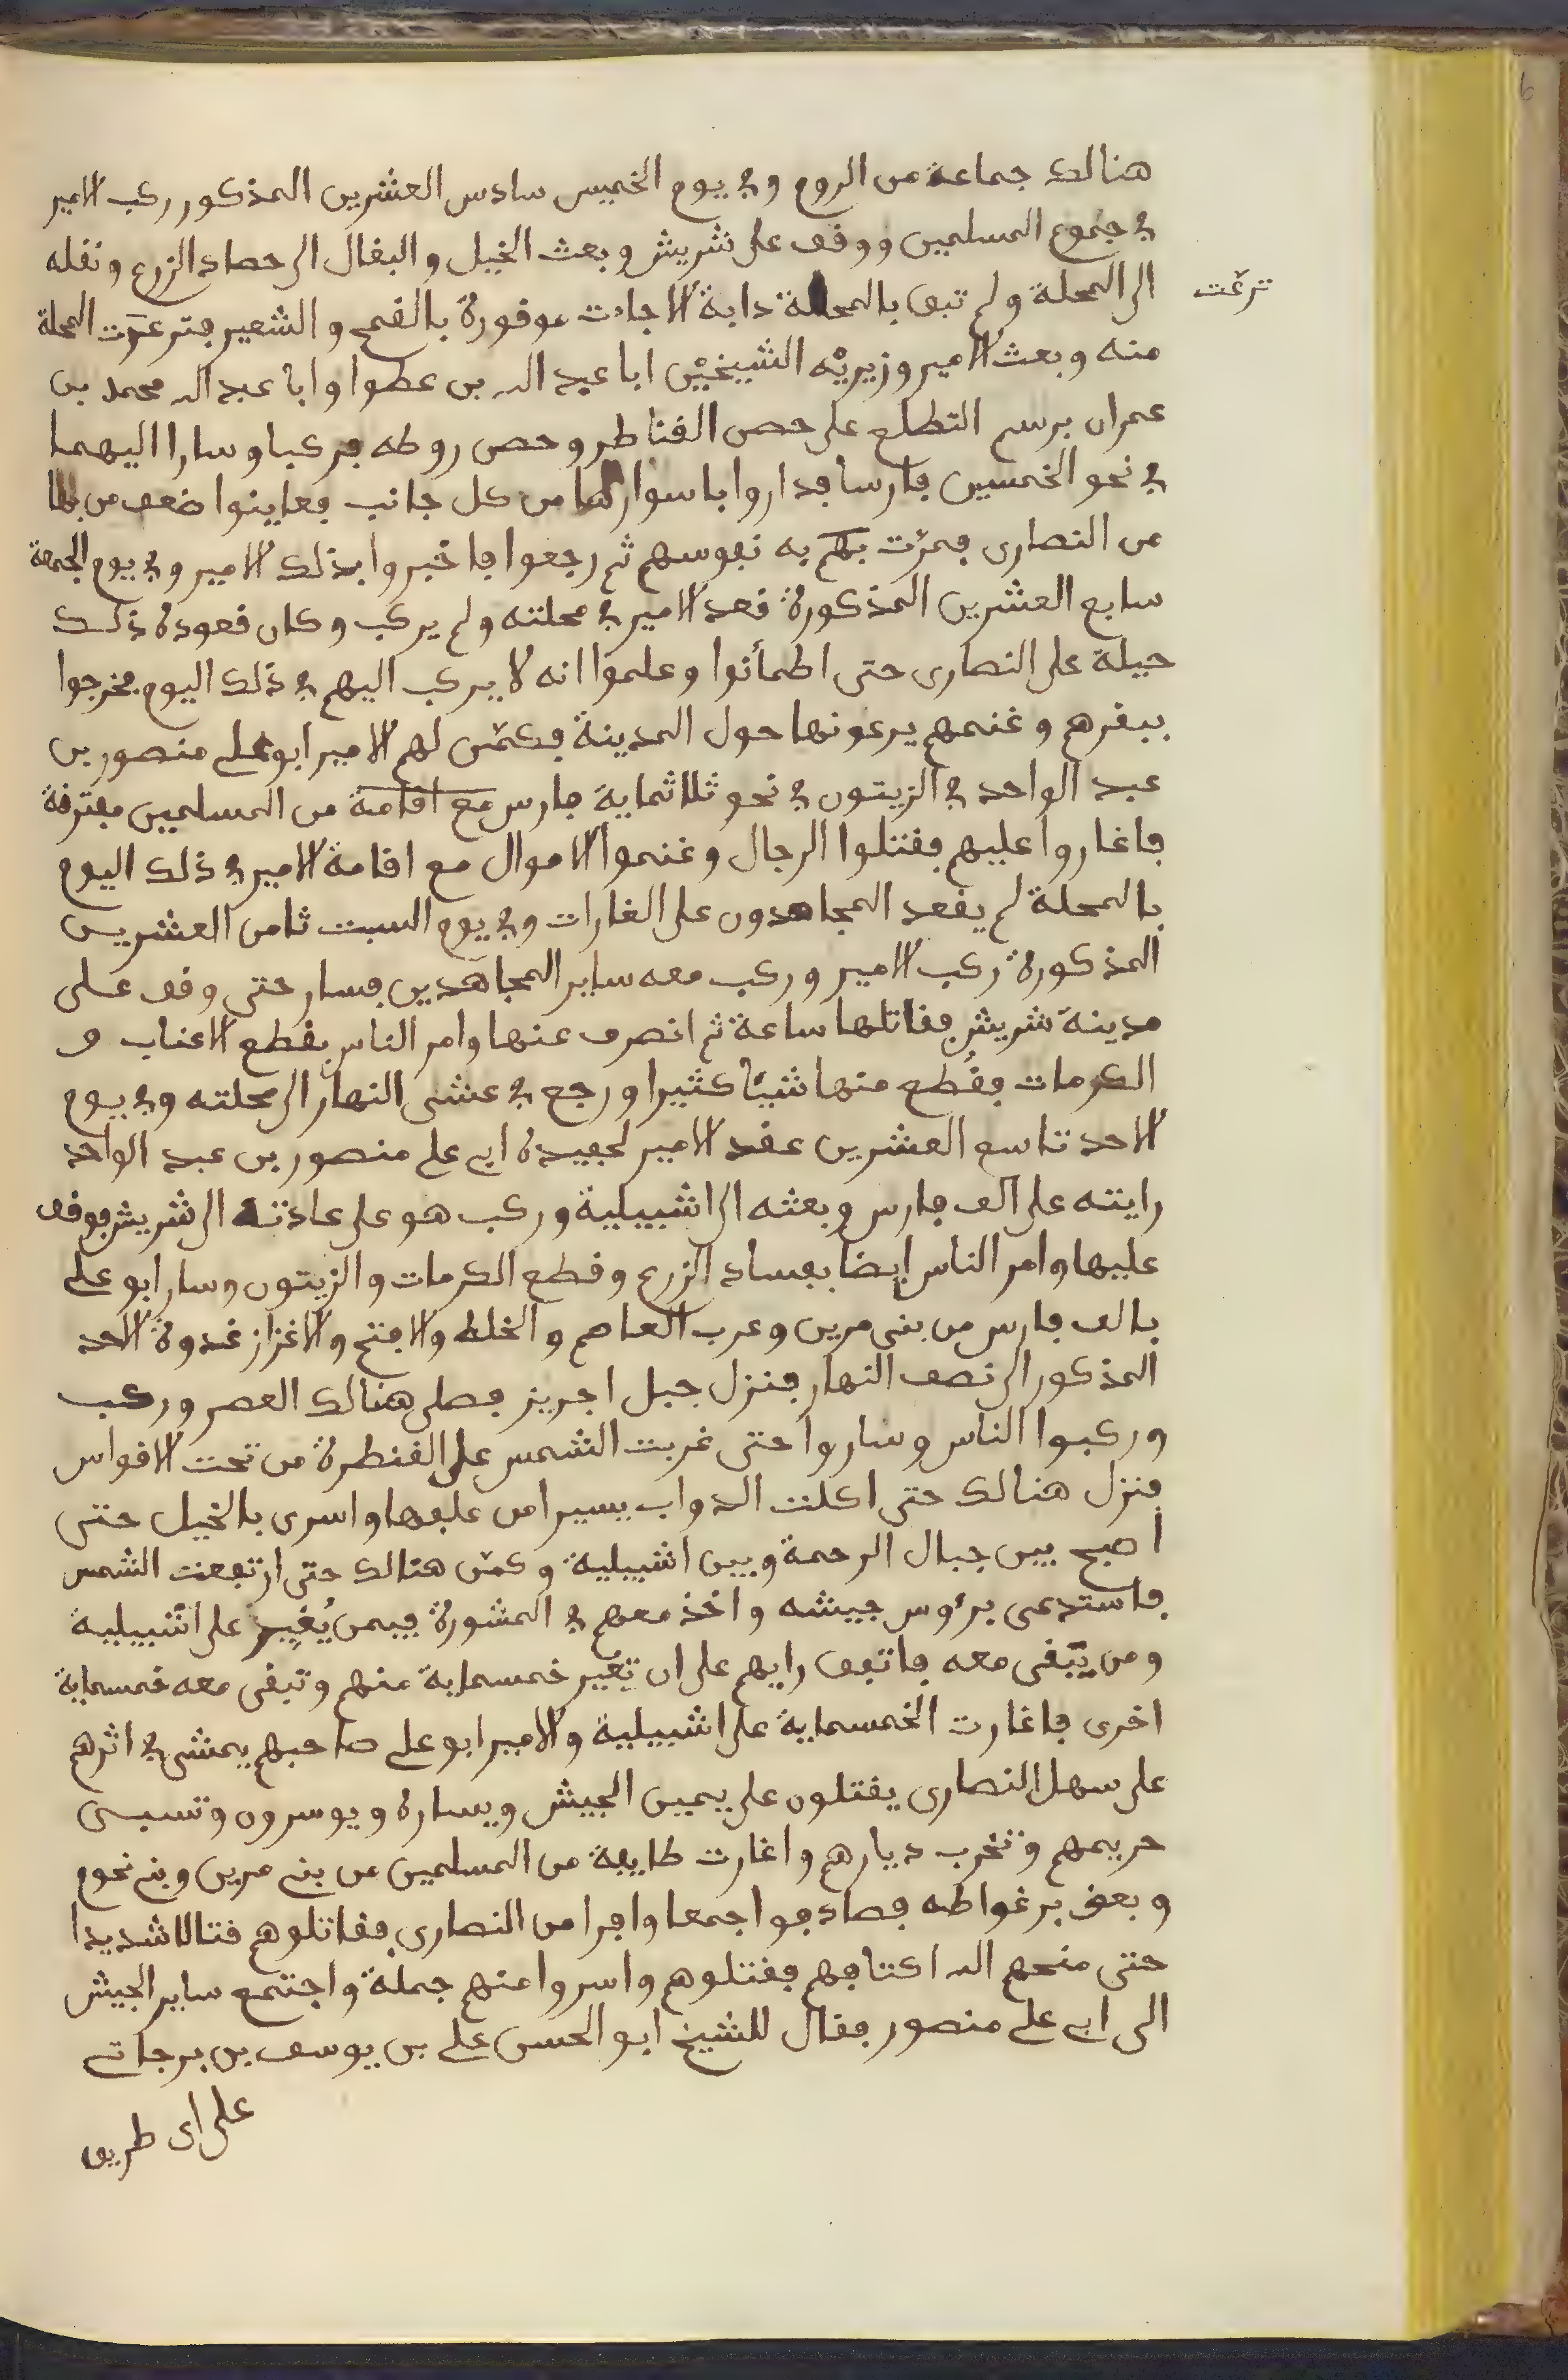 هنالك جماعة من الروم وفي يوم الخميس سادس العشرين المذكور ركب الامير
في جموع المسلمين ووقف على شريش وبعث الخيل والبغال الى حصاد الزرع ونقله
الى المحلة ولم تبق بالمحلة دابة الا جاءت موفورة بالقمح والشعير فترعرت المحلة
ترعّت
منه وبعث الامير وزيريْه الشيخيْن ابا عبد الله بن عطوا وابا عبد الله محمد بن
عمران برسم التطلع على حصن القناطر وحصن روطه فركبا وسارا اليهما
في نحو الخمسين فارسا فداروا باسوارهما من كل جانب فعاينوا ضعف من بها
من النصارى فمرّت بهم به نفوسهم ثم رجعوا فاخبروا بذلك الامير وفي يوم الجمعة
سابع العشرين المذكورة قعد الامير في محلته ولم يركب وكان قعوده ذلك
حيلة على النصارى حتى اطمأنوا وعلموا انه لا يركب اليهم في ذلك اليوم فخرجوا
ببقرهم وغنمهم يرعونها حول المدينة فكمّن لهم الامير ابو على منصور بن
عبد الواحد في الزيتون في نحو ثلاثماية فارس مع اقامة من المسلمين مفترقة
فاغاروا عليهم فقتلوا الرجال وغنموا الاموال مع اقامة الامير في ذلك اليوم
بالمحلة لم يقعد المجاهدون على الغارات وفي يوم السبت ثامن العشرين
المذكورة ركب الامير وركب معه ساير المجاهدين فسار حتى وقف على
مدينة شريش فقاتلها ساعة ثم انصرف عنها وامر الناس بقطع الاعناب و
الكرمات فقُطع منها شيئا كثيرا ورجع في عشى النهار الى محلته وفي يوم
الاحد تاسع العشرين عقد الامير لحفيده ابى على منصور بن عبد الواحد
رايته على الف فارس وبعثه الى اشبيلية وركب هو على عادته الى شريش فوقف
عليها وامر الناس ايضا بفساد الزرع وقطع الكرمات والزيتون وسار ابو على
بالف فارس من بنى مرين وعرب العاصم والخلط والافتح والاغزاز غدوة الاحد
المذكور الى نصف النهار فنزل جبل اجريز فصلى هنالك العصر وركب
وركبوا الناس وساروا حتى غربت الشمس على القنطرة من تحت الاقواس
فنزل هنالك حتى اكلت الدواب يسيرا من علفها واسرى بالخيل حتى
اصبح بين جبال الرحمة وبين اشبيلية وكمّن هنالك حتى ارتفعت الشمس
فاستدعى برءوس جيشه واخذ معهم في المشورة فيمن يُغير على اشبيلية
ومن يَبقى معه فاتفق رايهم على ان تغير خمسماية منهم وتبقى معه خمسماية
اخرى فاغارت الخمسماية على اشبيلية والامير ابو على صاحبهم يمشى في اثرهم
على سهل النصارى يقتلون على يمين الجيش ويساره ويوسرون وتسبى
حريمهم وتخرب ديارهم واغارت طايفة من المسلمين من بنى مرين وبنى نحوم
وبعض برغواطه فصادفوا جمعا وافرا من النصارى فقاتلوهم قتالا شديدا
حتى منحهم الله اكتافهم فقتلوهم واسروا منهم جملة واجتمع ساير الجيش
الى ابى على منصور فقال للشيخ ابو الحسن على بن يوسف بن يرجاتى
على اى طريق